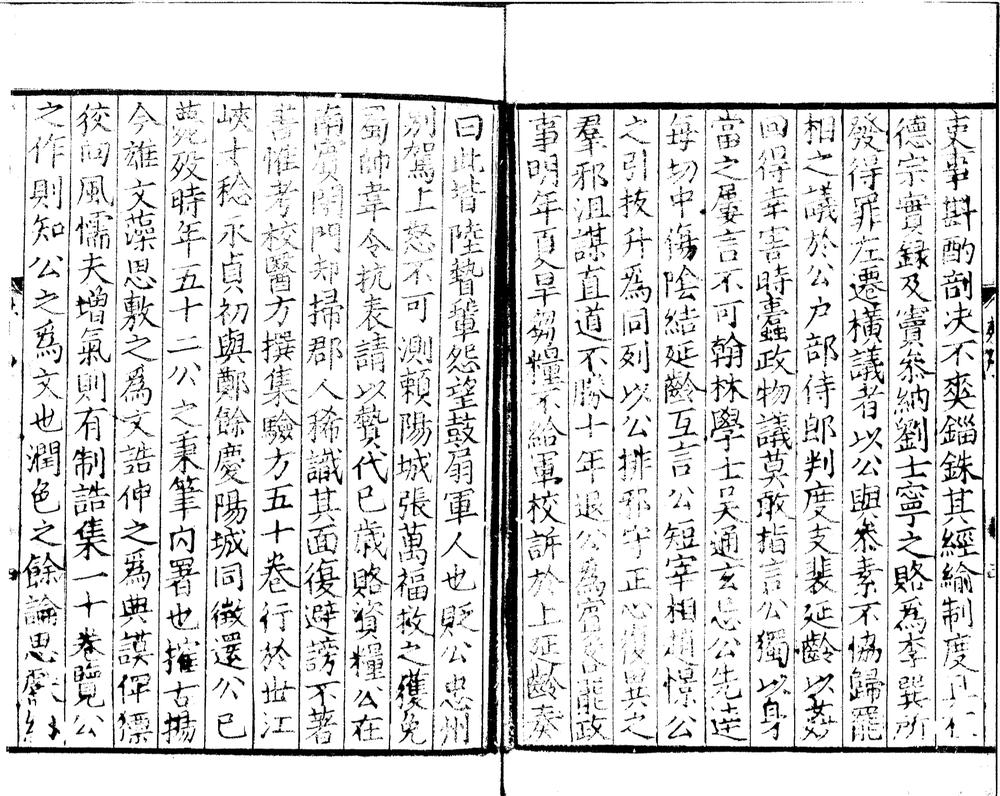 吏事斟酌剖決不爽錙銖其經綸制度具在
德宗實録及竇叅納劉士寧之賂爲李巽所
發得罪左遷橫議者以公與叅素不協歸罷
相之議於公户部侍郎判度支裴延齡以姦
回得幸害時蠹政物議莫敢指言公獨以身
當之屢言不可翰林學士吴通玄忌公先達
每切中傷陰結延齡互言公短宰相趙憬公
之引拔升爲同列以公排邪守正心復異之
羣邪沮謀直道不勝十年退公爲賔客罷政
事明年夏旱芻糧不給軍校訴於上延齡奏
曰此皆陸贄輩怨望鼓扇軍人也貶公忠州
别駕上怒不可測賴陽城張萬福救之獲免
蜀帥韋令抗表請以贄代已歲賂資糧公在
南賓閉門却掃郡人稀識其面復避謗不著
書惟考校醫方撰集驗方五十卷行於世江
峽十稔永貞初與鄭餘慶陽城同徵還公已
薨歿時年五十二公之秉筆内署也摧古揚
今雄文藻思敷之爲文誥伸之爲典謨俾僄
狡向風懦夫增氣則有制誥集一十卷覽公
之作則知公之爲文也潤色之餘論思獻納